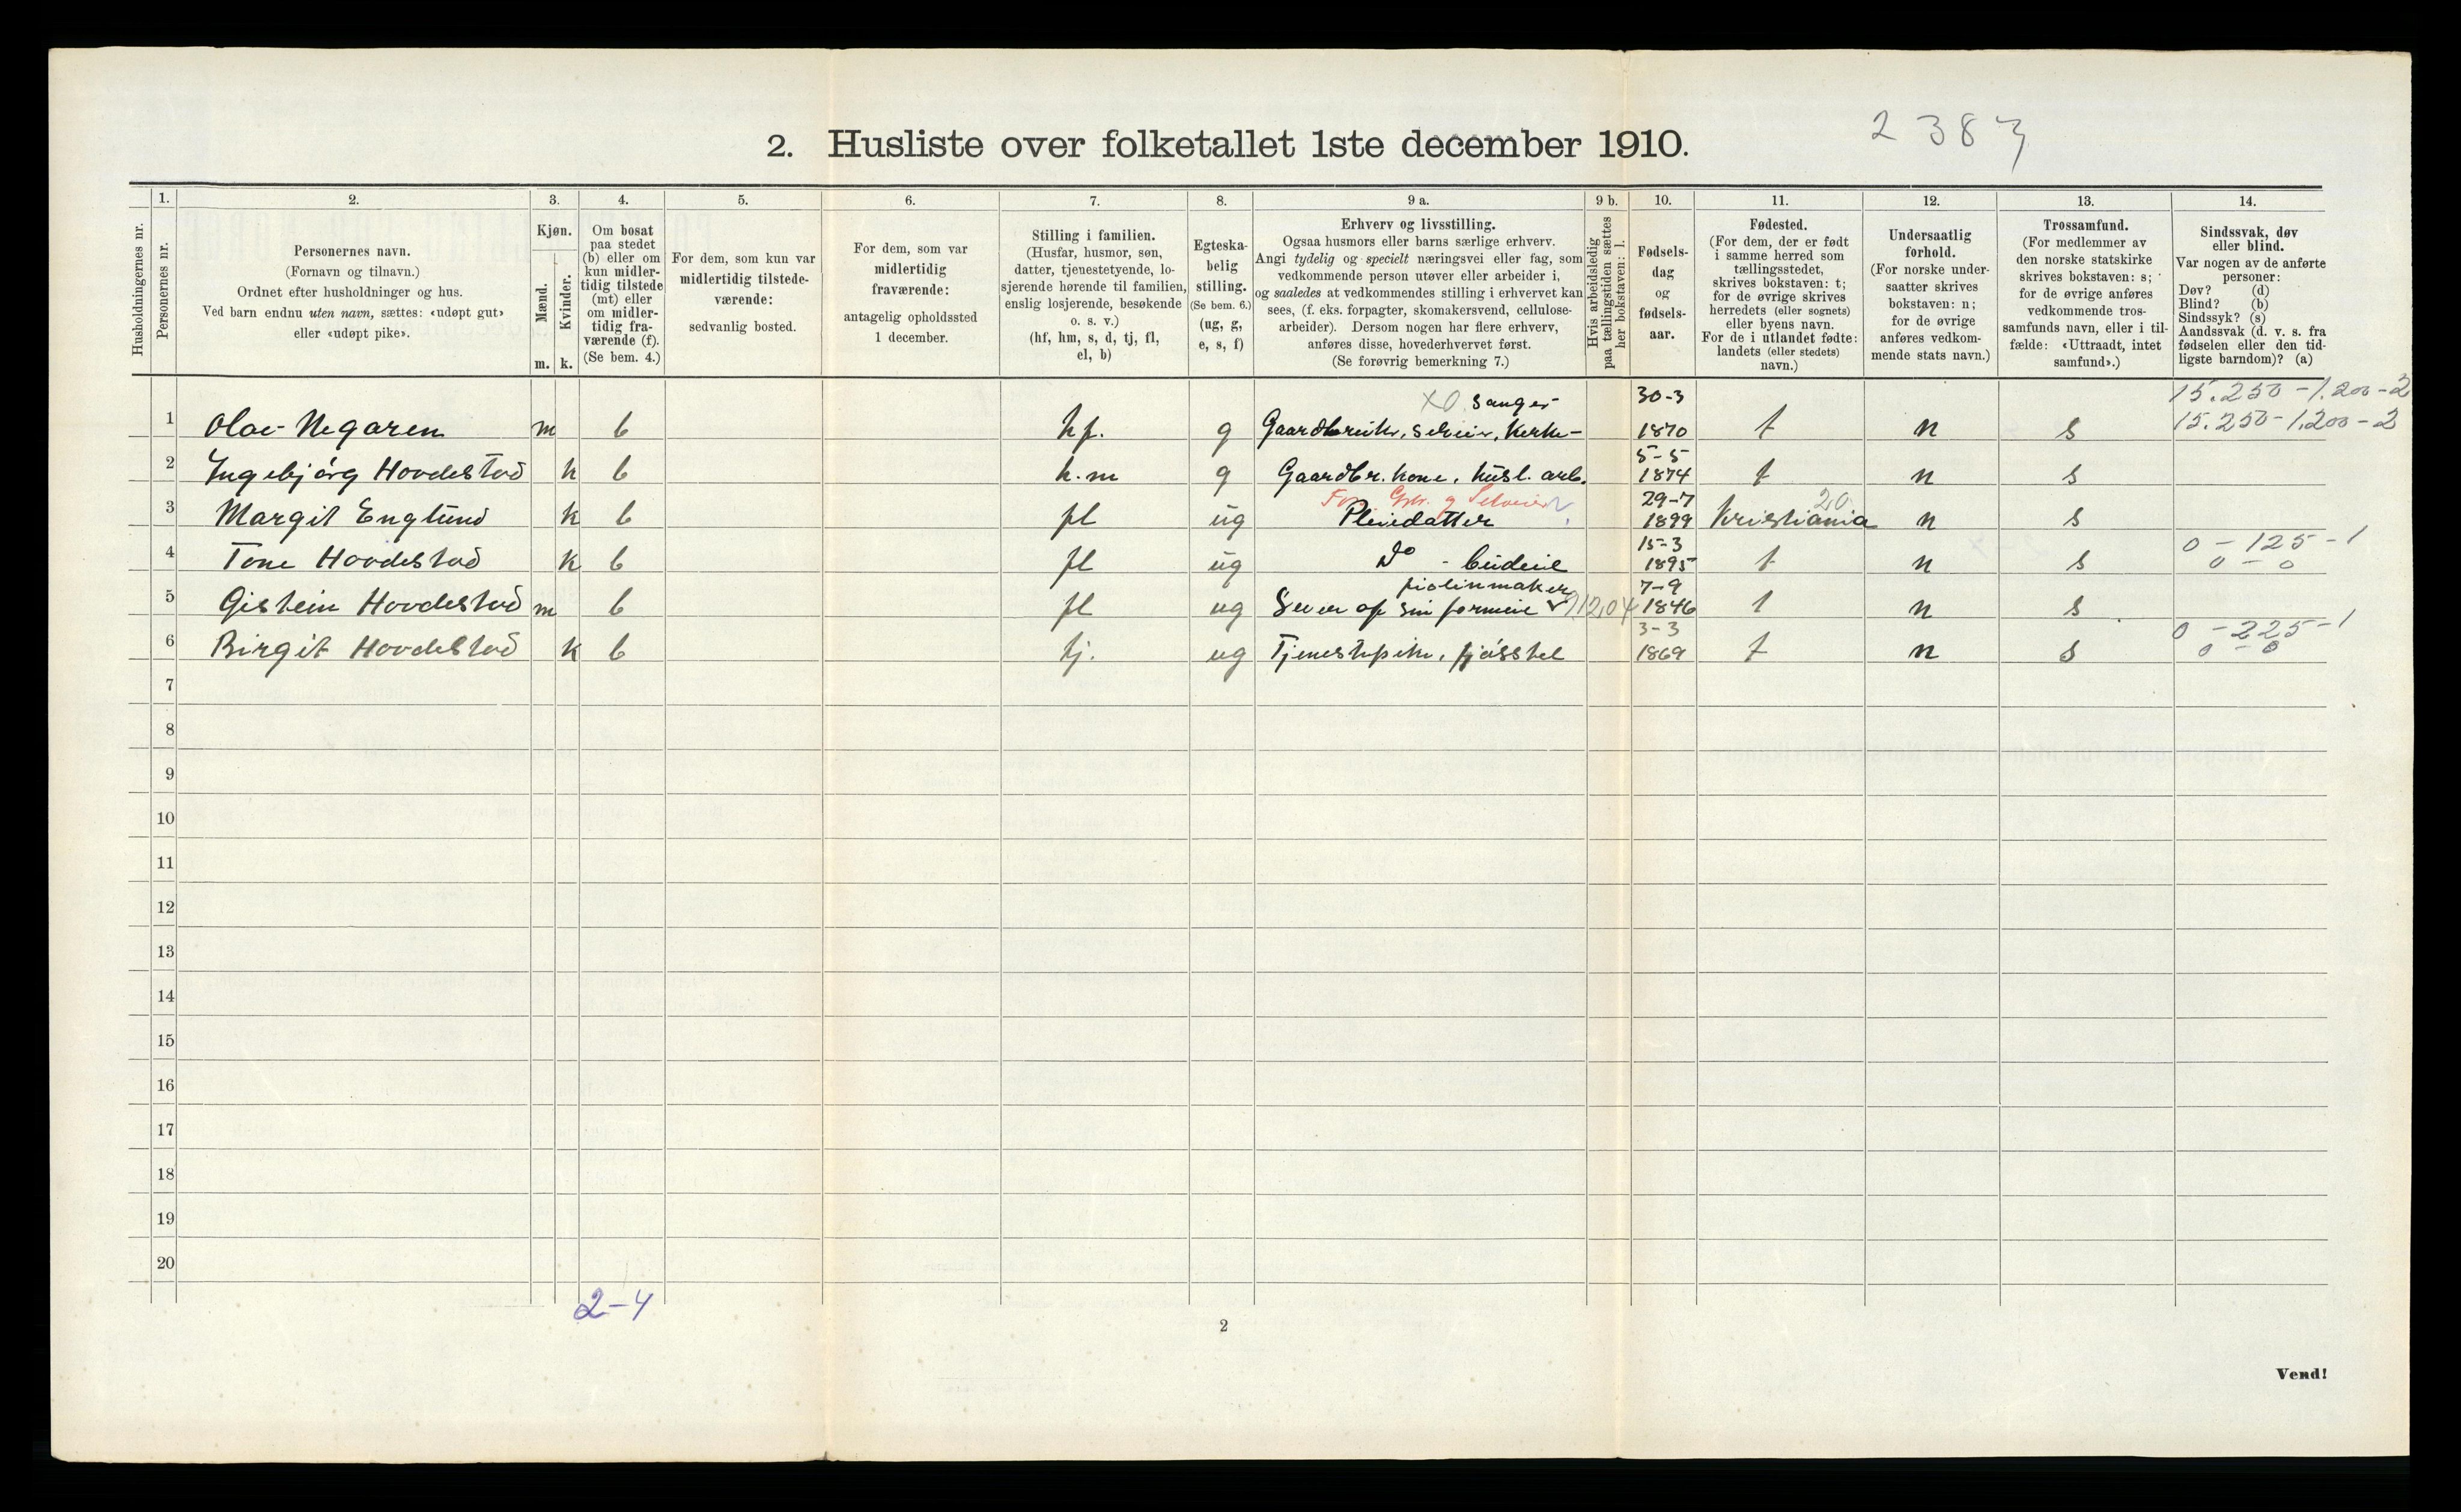 2 3 8 3
2. Husliste over folketallet 1ste december 1910.
Husholdningernes nr.
1.
Personernes nr.
2.
Personernes navn.
(Fornavn og tilnavn.)
Ordnet efter husholdninger og hus.
Ved barn endnu uten navn, sættes: «udøpt gut»
eller «udøpt pike».
3.
Kjøn.
Mænd.
Kvinder.
m. k.
4.
Om bosat
paa stedet
(b) eller om
kun midler-
tidig tilstede
(mt) eller
om midler-
tidig fra-
værende (f).
(Se bem. 4.)
5.
For dem, som kun var
midlertidig tilstede-
værende:
sedvanlig bosted.
6.
For dem, som var
midlertidig
fraværende:
antagelig opholdssted
1 december.
7.
Stilling i familien.
(Husfar, husmor, søn,
datter, tjenestetyende, lo-
sjerende hørende til familien,
enslig losjerende, besøkende
o. s. v.)
(hf, hm, s, d, tj, fl,
el, b)
8.
Egteska-
belig
stilling.
(Se bem. 6.)
(ug, g,
e, s, f)
9 a.
Erhverv og livsstilling.
Ogsaa husmors eller barns særlige erhverv.
Angi tydelig og specielt næringsvei eller fag, som
vedkommende person utøver eller arbeider i,
og saaledes at vedkommendes stilling i erhvervet kan
sees, (f. eks. forpagter, skomakersvend, cellulose-
arbeider). Dersom nogen har flere erhverv,
anføres disse, hovederhvervet først.
(Se forøvrig bemerkning 7.)
9 b.
Hvis arbeidsledig
paa tællingstiden sættes
her bokstaven: l.
10.
Fødsels-
dag
og
fødsels-
aar.
11.
Fødested.
(For dem, der er født
i samme herred som
tællingsstedet,
skrives bokstaven: t;
for de øvrige skrives
herredets (eller sognets)
eller byens navn.
For de i utlandet fødte:
landets (eller stedets)
navn.)
12.
Undersaatlig
forhold.
(For norske under-
saatter skrives
bokstaven: n;
for de øvrige
anføres vedkom-
mende stats navn.)
13.
Trossamfund.
(For medlemmer av
den norske statskirke
skrives bokstaven: s;
for de øvrige anføres
vedkommende tros-
samfunds navn, eller i til-
fælde: «Uttraadt, intet
samfund».)
14.
Sindssvak, døv
eller blind.
Var nogen av de anførte
personer:
Døv? (d)
Blind? (b)
Sindssyk? (s)
Aandssvak (d. v. s. fra
fødselen eller den tid-
ligste barndom)? (a)
XO sanger 30-3 15.250-1.200-2
1 Olav Negaren m b hf. g Gaardbruker, selveier, Kerke- 1870 t n s 15.250-1.200-2
5-5
2 Ingebjörg Hovdestad k b h.m g Gaardbr. kone, husl. arb. 1874 t n s
Gbr. g Selveier 29-7 20
3 Margit Englund k b fl ug Pleiedatter 1899 Kristiania n s
15-3 0-125-1
4 Tone Hovdestad k b fl ug Do - budeie 1895 t n s 0-0
fiolinmaker 7-9
5 Gistein Hovdestad m b fl ug Lever af sin formue 1846 t n s
3-3 0-225-1
6 Birgit Hovdestad k b tj. ug Tjenestepike, fjösstel 1869 t n s 0-0
7
8
9
10
11
12
13
14
15
16
17
18
19
20
2-4
2
Vend!